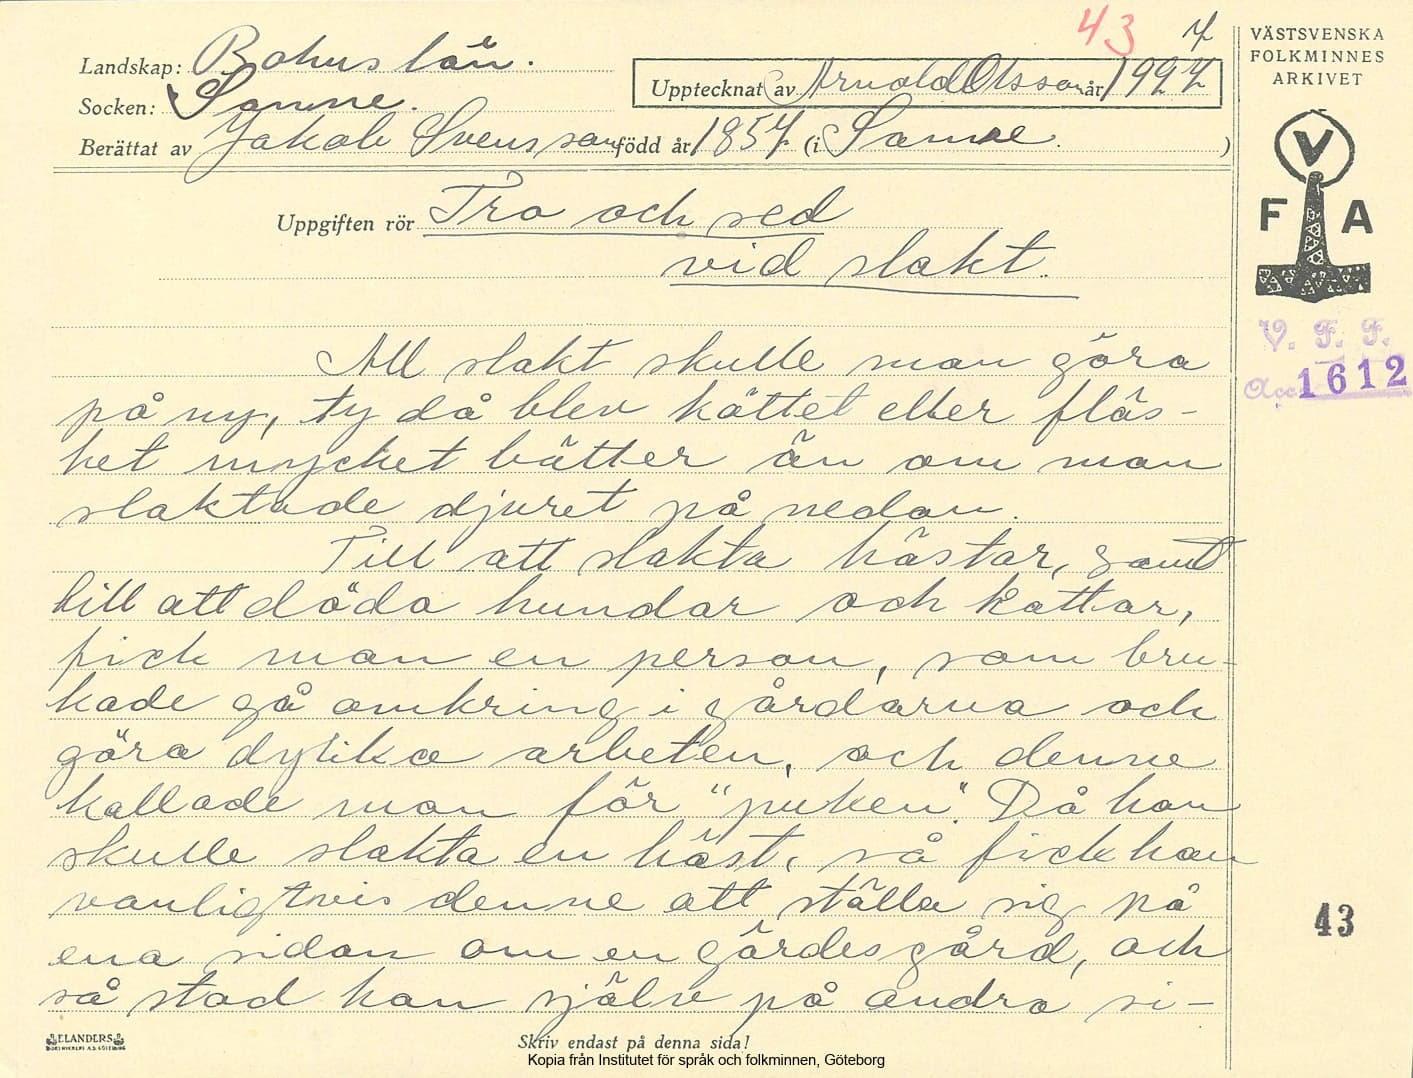 43 4
Landskap: Bohuslän.
Socken: Sanne.
Upptecknat av Arnold Olsson år 1927
Berättat av Jakob Svensson född år 1857 (i Sanne. )
VÄSTSVENSKA
FOLKMINNES
ARKIVET
V
F A
V. F. F.
Acc. 1612
Uppgiften rör Tro och sed
vid slakt.
All slakt skulle man göra
på ny, ty då blev köttet eller fläs-
ket mycket bätter än om man
slaktade djuret på nedan.
Till att slakta hästar, samt
till att döda hundar och kattar,
fick man en person, som bru-
kade gå omkring i gårdarna och
göra dylika arbeten, och denne
kallade man för "puken". Då han
skulle slakta en häst, så fick han
vanligtvis denne att ställa sig på
ena sidan om en gärdesgård, och
så stod han själv på andra si-
43
ELANDERS
Skriv endast på denna sida!
Kopia från Institutet för språk och folkminnen, Göteborg